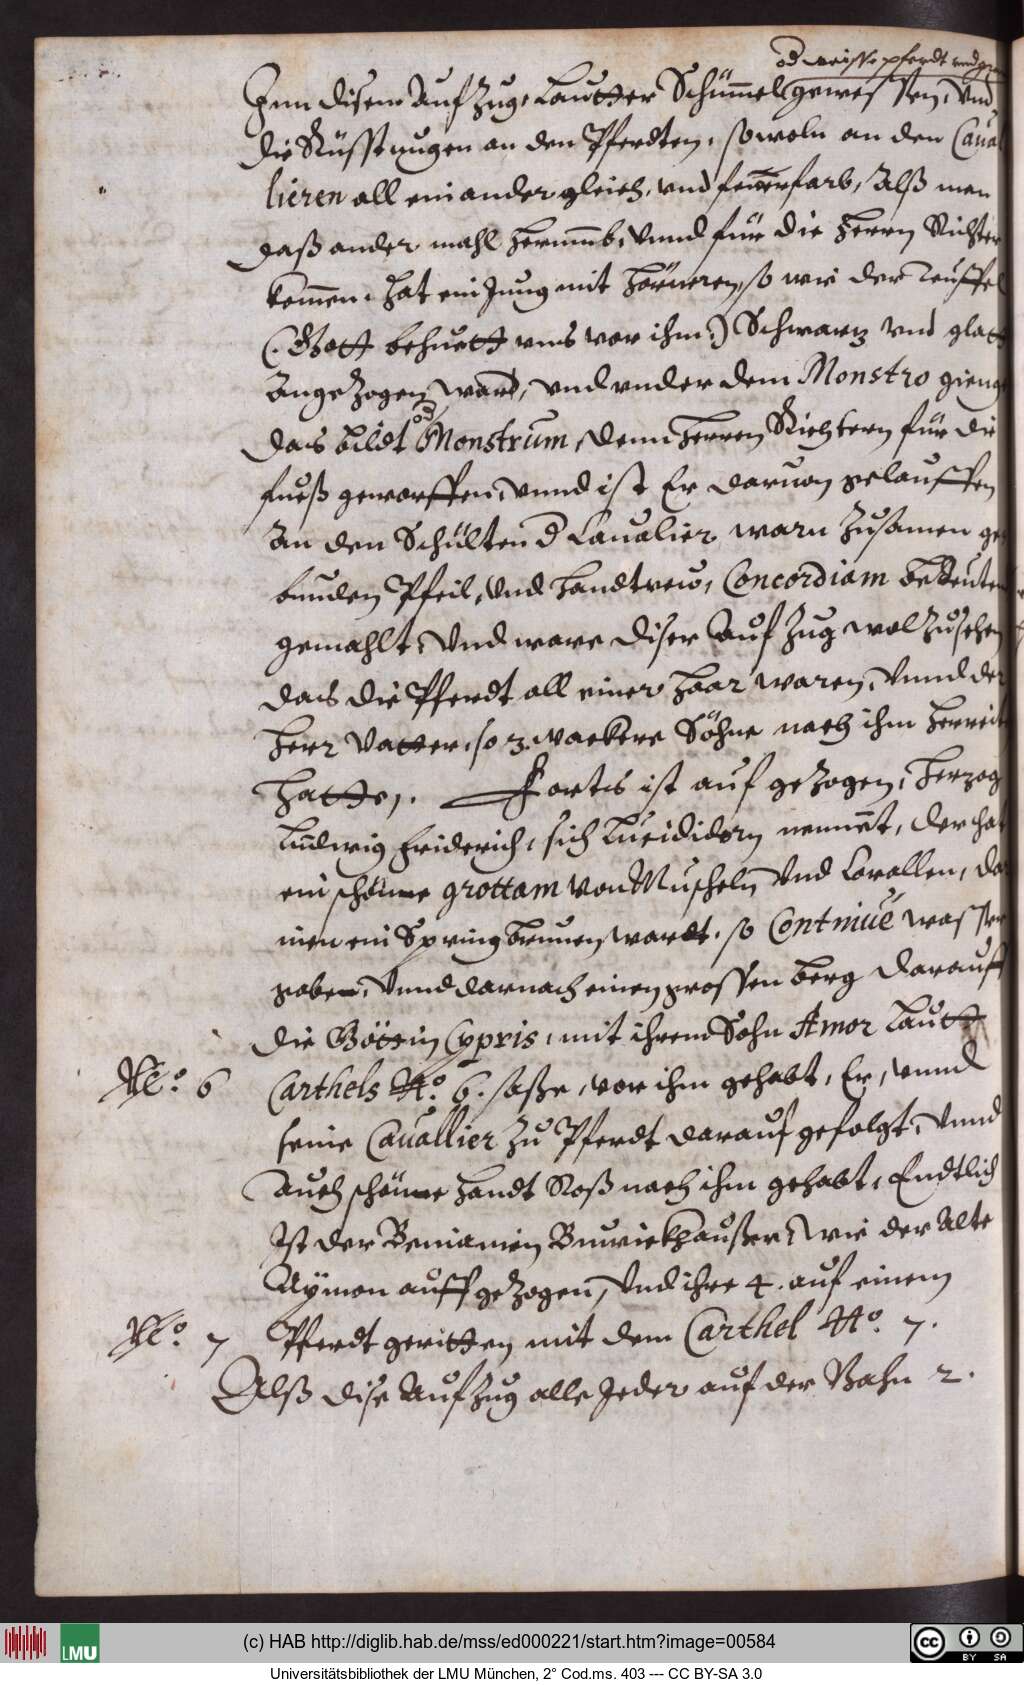 od weisse pferdt vnd
Inn disem Auf Zug, Lautter Schümmel gewessen, Vnd
die Rüsstungen an den Pferdten, sowoln an den Caual
lieren all einander gleich, vnd feuerfarb, Alß man
daß ander mahl herumb, Vnnd für die Herrn Richter
kommen, hat ein Jung mit Hörneren, so wie der Teuffel
(: Gott behuett vns vor ihm :) Schwartz vnd glatt
Angezogen ward, vnd vnder dem Monstro gieng
das bildt od Monstrum, denn Herren Richtern für die
fueß geworffen, Vnnd ist Er daruon gelauffen
An den Schülten d Caualier warn Zusamen ge
bunden Pfeil, Vnd handtrew, Concordiam bedeuten
gemahlt, Vnd ware diser Auf Zug wol Zusehen
das die Pferdt all einer haar waren, Vnnd der
Herr Vatter, so 3. wackere Söhne nach ihm herreit
hatte,. Forts ist auf gezogen, Herzog
Ludwig Friderich, sich nennet, der hat
ein schöne grottam von Muscheln Vnd Corallen, da
inen ein Springbrunen wardt, so Continué wasser
gaben, Vnnd darnach einen grossen berg darauff
die Göttin Cypris, mit ihrem Sohn Amor Lautt
No. 6 Carthels No. 6. saße, vor ihm gehabt, Er, vnnd
seine Cauallier Zu Pferdt darauf gefolgt, Vnnd
auch schöne handt Roß nach ihm gehabt, Endtlich
Ist der Beniamien Buwinckhaußen, wie der Alte
Aÿmon auff gezogen, Vnd ihre 4. auf einem
No. 7 Pferdt geritten mit dem Carthel No. 7.
Alß dise Aufzug alle Jeder auf der Bahn 2.
(c) HAB http://diglib.hab.de/mss/ed000221/start.htm?image=00584
LMU
cc BY SA
Universitätsbibliothek der LMU München, 2° Cod.ms. 403 --- CC BY-SA 3.0